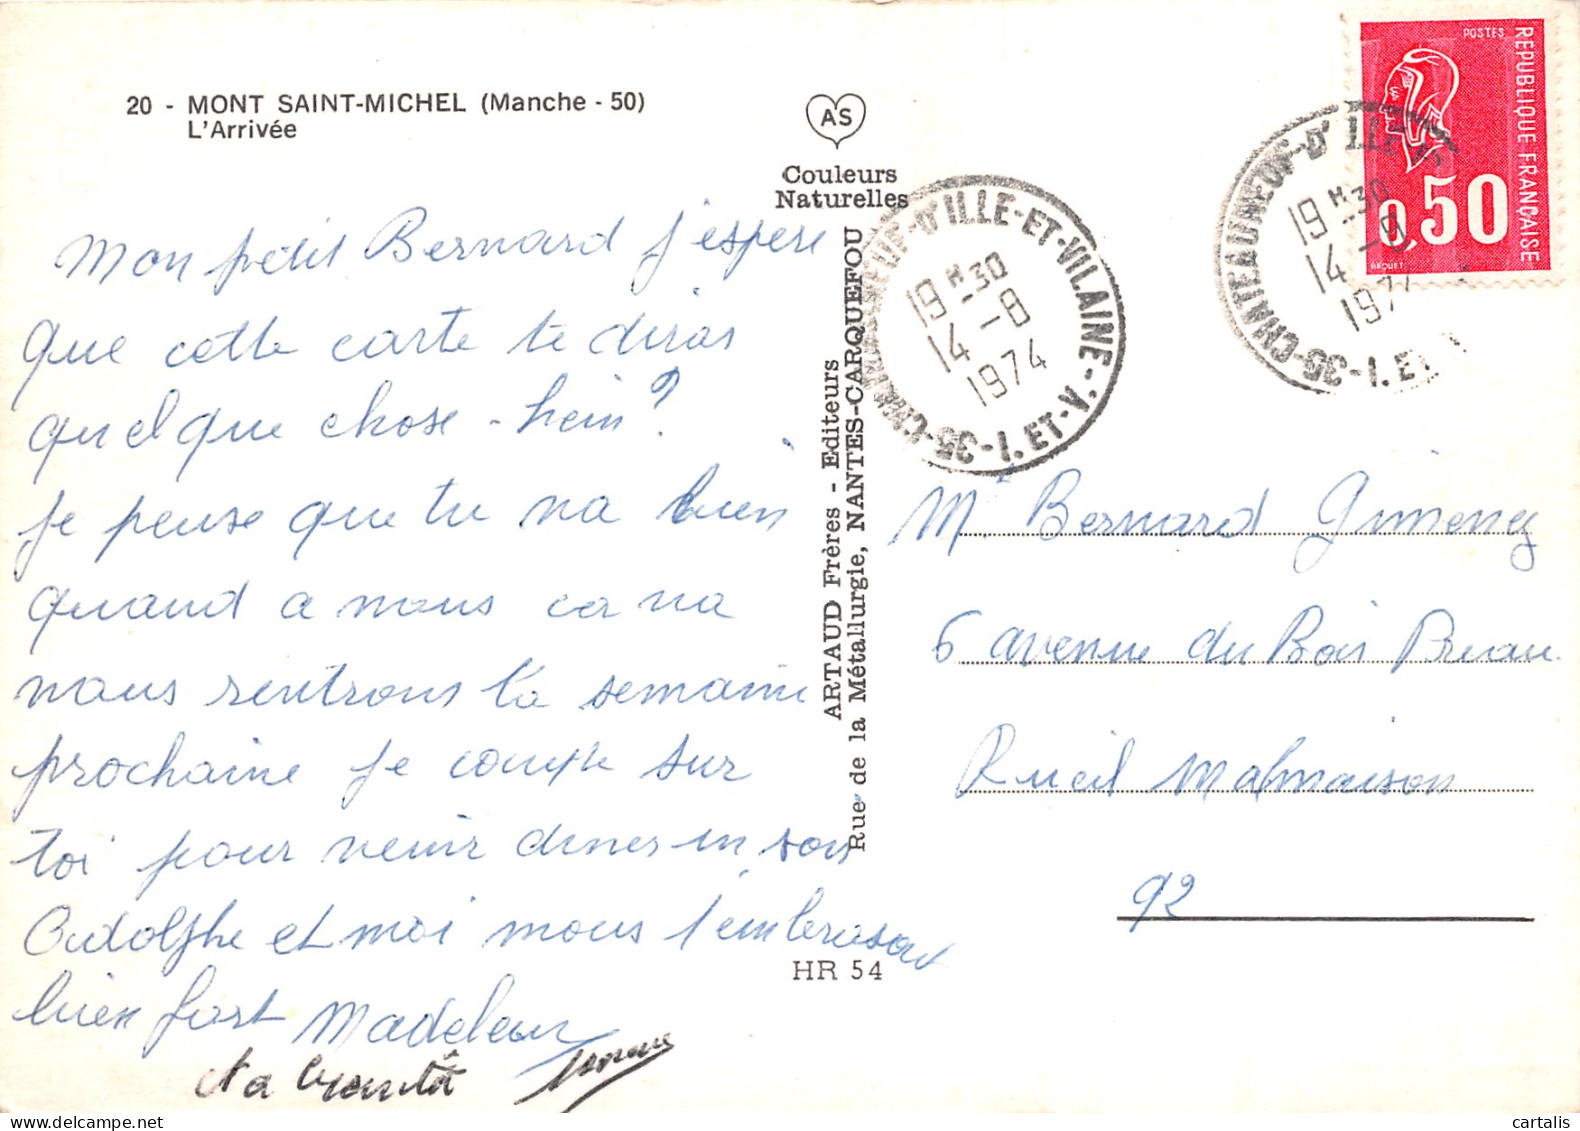 20 - MONT SAINT-MICHEL (Manche - 50)
L'Arrivée
AS
Couleurs
Naturelles
Mon petit Bernard j'espère
que cette carte te diras
quelque chose - hein?
je pense que tu va bien
quand a nous ca va
nous rentrons la semaine
prochaine je compte sur
toi pour venir diner un soir
Adolphe et moi nous t'embrasont
bien fort Madeleine
et a bientôt
ARTAUD Frères - Editeurs
Rue de la Métallurgie, NANTES-CARQUEFOU
HR 54
D'ILLE-ET-VILAINE
35-I. ET-V.
19 H 30
14 - 8
1974
35-CHATEAUNEUF-D'ILLE
35-I. ET
19 H 30
14 - 8
197
POSTES
REPUBLIQUE FRANÇAISE
0,50
BEQUET
Mr Bernard Gimenez
6 avenue du Bois Preau
Rueil Malmaison
92
cartalis